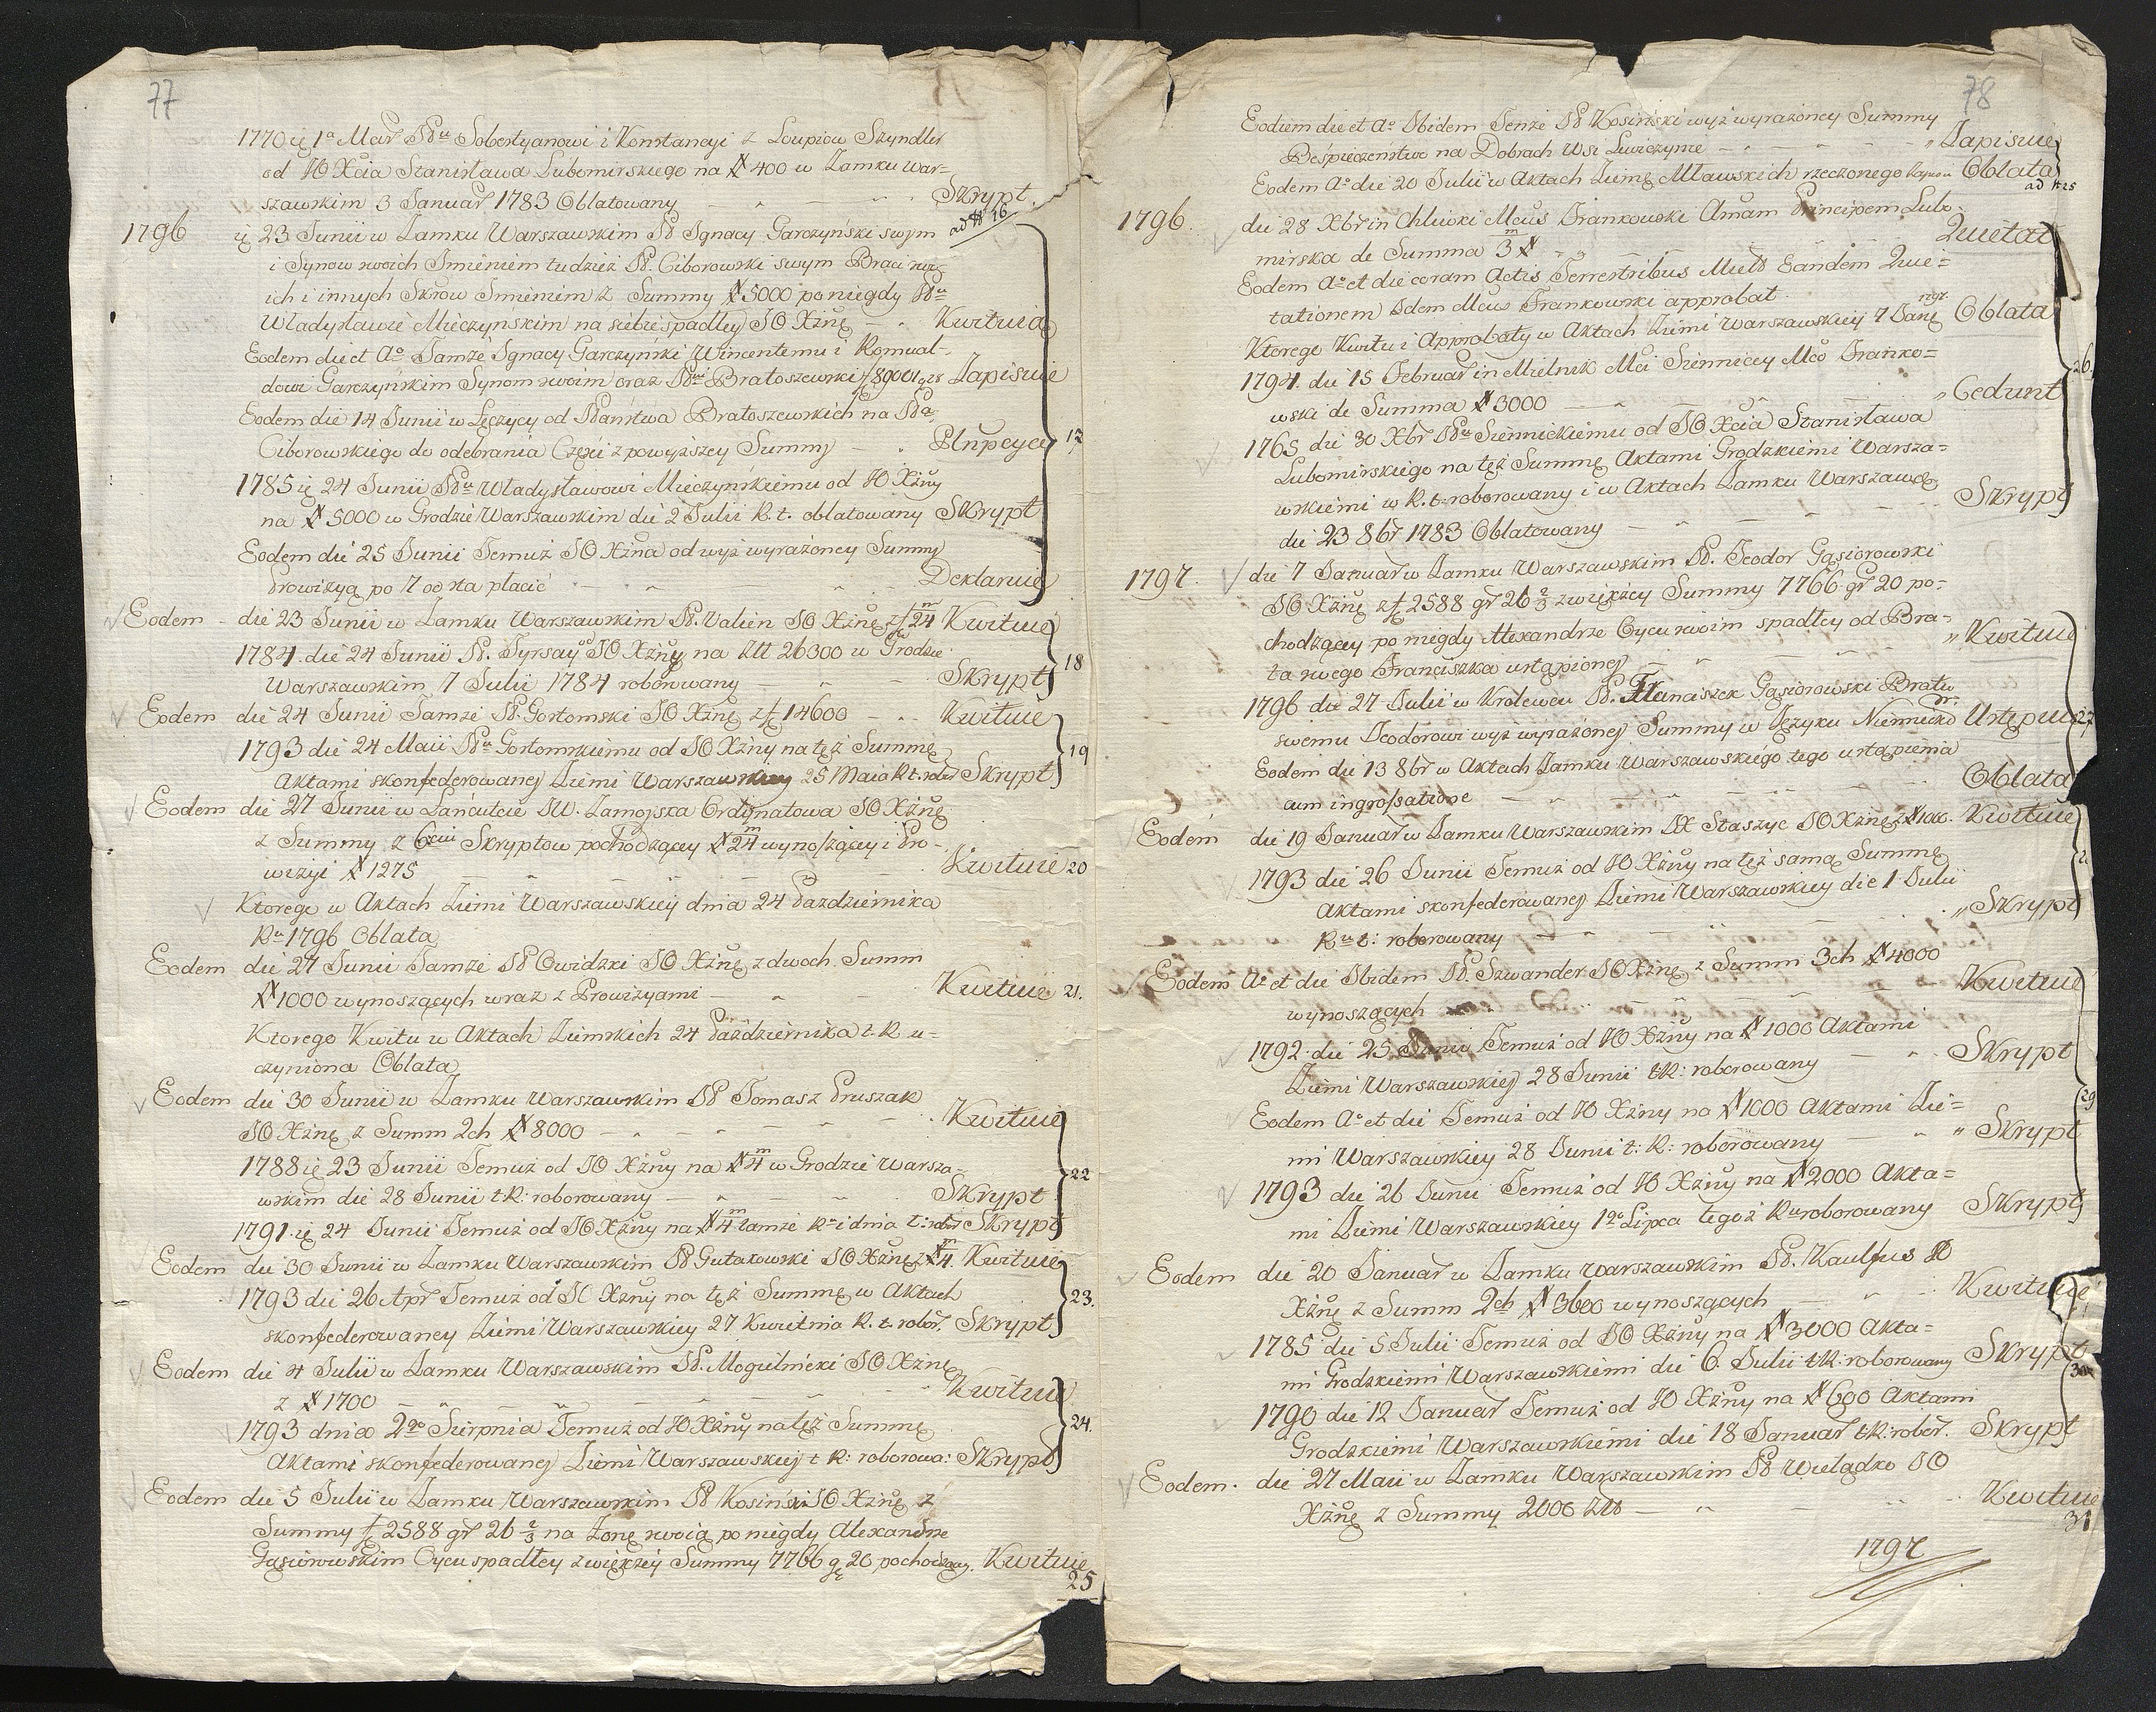 77
1770 ię 1ª Mar PPu Sobestyanowi i Konstancyi z Loupiow Szyndler
od JO Xcia Stanisława Lubomirskiego na # 400 w Zamku War-
szawskim 3 Januar 1783 Oblatowany — Skrypt.
ad N 16
1796 ię 23 Junii w Zamku Warszawskim P Ignacy Garczyński swym
i Synow swoich Imieniem tudzież P. Ciborowski swym Braci swo-
ich i innych Skrow Imieniem z Summy # 5000 po niegdy Pu
Władysławie Mieczyńskim na siebie spadłey JO Xżnę — Kwituią
Eodem die et Aº Tamże Ignacy Garczyński Wincentemu i Romual-
dowi Garczyńskim Synom swoim oraz PPwi Bratoszewski f 8900 Zapisuie
Eodem die 14 Junii w Łęczycy od Państwa Bratoszewskich na Pa
Ciborowskiego do odebrania Częsci z powyższey Summy — Plnpcya
17
1785 ię 24 Junii Pu Władysławowi Mieczyńskiemu od JO Xżny
na # 5000 w Grodzie Warszawskim die 2 Julii R. t. oblatowany Skrypt
Eodem die 25 Junii Temuż JO Xżna od wyż wyrażoney Summy
Prowizyą po 7 od sta płacić — Deklaruie
Eodem die 23 Junii w Zamku Warszawskim P. Valien JO Xżnę z # 24 m Kwituie
1784 die 24 Junii P. Tyrsay JO Xżny na Złł 26300 w Grodzie
Warszawskim 7 Julii 1784 roborowany — Skrypt
18
Eodem die 24 Junii Tamże P. Gortomski JO Xżnę z f 14600 — Kwituie
1793 die 24 Maii Pu Gortomskiemu od JO Xżny na tęż Summę
Aktami skonfederowaney Ziemi Warszawskiey 25 Maia R t. robor Skrypt
19
Eodem die 27 Junii w Łańcucie JW. Zamojska Ordynatowa JO Xżnę
z Summy z 6ciu Skryptow pochodzącey # 24 m wynoszącey i Pro-
wizyi # 1275 — Kwituie 20
Ktorego w Aktach Ziemi Warszawskiey dnia 24 Pazdziernika
Ru 1796 Oblata
Eodem die 27 Junii Tamże P Owidzki JO Xżnę z dwoch Summ
# 1000 wynoszących wraz z Prowizyami — Kwituie 21.
Ktorego Kwitu w Aktach Ziemskich 24 Października t. R u-
czyniona Oblata
Eodem die 30 Junii w Zamku Warszawskim P Tomasz Pruszak
JO Xżnę z Summ 2ch # 8000 — Kwituie
1788 ię 23 Junii Temuż od JO Xżny na # 4 m w Grodzie Warsza-
wskim die 28 Junii t R: roborowany — Skrypt
22
1791 ię 24 Junii Temuż od JO Xżny na # 4 m tamże Rº i dnia t: robor Skrypt
Eodem die 30 Junii w Zamku Warszawskim P Gutakowski JO Xżnę z # 4 m Kwituie
1793 die 26 Apr Temuż od JO Xżny na tęż Summę w Aktach
skonfederowaney Ziemi Warszawskiey 27 Kwietnia R. t. robor. Skrypt
23.
Eodem die 4 Julii w Zamku Warszawskim P. Mogielnicki JO Xżnę
z # 1700 — Kwituie
1793 dnia 2go Sierpnia Temuż od JO Xżny na tęż Summę
Aktami skonfederowaney Ziemi Warszawskiej t R: roborowa: Skrypt
24.
Eodem die 5 Julii w Zamku Warszawskim P Kosiński JO Xżnę z
Summy f 2588 gr 26 2/3 na Zonę swoią po niegdy Alexandrze
Gąsiorowskim Oycu spadłey z większey Summy 7766 g 20 pochodzący. Kwituie
25
78
Eodem die et Aº Ibidem Tenże P Kosiński wyż wyrażoney Summy
Beśpieczeństwo na Dobrach Wsi Lewiczynie — Zapisuie
Eodem Aº die 20 Julii w Aktach Ziemę Mławskich rzeczonego Zapisu Oblata
ad N 25
1796. die 28 Xbr in Chlewki Mcus Frankowski Cmam Principem Lubo-
mirska de Summa 3 m # — Quietat
Eodem Aº et die coram Actis Terrestribus Mieln Eandem Quie=
tationem Idem Mcus Frankowski approbat.
Ktorego Kwitu i Approbaty w Aktach Ziemi Warszawskiey 7 Janr 1797. Oblata
1794. die 15 Februar in Mielnik Mci Siennicey Mco Franko=
wski de Summa # 3000 — Cedunt
26.
1765 die 30 Xbr Pu Siennickiemu od JO Xcia Stanisława
Lubomirskiego na tęż Summę Aktami Grodzkiemi Warsza=
wskiemi w R. t. roborowany i w Aktach Zamku Warszawg
die 23 8br 1783 Oblatowany — Skrypt
1797. die 7 Januar w Zamku Warszawskim P. Teodor Gąsiorowski
JO Xżnę z f 2588 gr 26 2/3 z większey Summy 7766 gr 20 po=
chodzącey po niegdy Alexandrze Oycu swoim spadłey od Bra=
ta swego Franciszka ustąpioney — Kwituie
1796 die 27 Julii w Krolewcu P. Franciszek Gąsiorowski Bratu
swemu Teodorowi wyż wyrażoney Summy w Języku Niemieckim Ustępuie
27
Eodem die 13 8br w Aktach Zamku Warszawskiego tego ustąpienia
cum ingrossatione — Oblata
Eodem die 19 Januar w Zamku Warszawskim JX Staszyc JO Xżnę z # 1000. Kwituie
1793 die 26 Junii Temuż od JO Xżny na tęż samą Summę
Aktami skonfederowaney Ziemi Warszawskiey die 1 Julii
Ru t: roborowany — Skrypt
Eodem Aº et die Ibidem P. Szwander JO Xżnę z Summ 3ch # 4000
wynoszących — Kwituie
1792 die 25 Junii Temuż od JO Xżny na # 1000 Aktami
Ziemi Warszawskiey 28 Junii t R: roborowany — Skrypt
Eodem Aº et die Temuż od JO Xżny na # 1000 Aktami Zie=
mi Warszawskiey 28 Junii t: R: roborowany — Skrypt
29
1793 die 26 Junii Temuż od JO Xżny na # 2000 Akta=
mi Ziemi Warszawskiey 1go Lipca tegoż Ru roborowany Skrypt
Eodem die 20 Januar w Zamku Warszawskim P. Kaulfus JO
Xżnę z Summ 2ch # 3600 wynoszących — Kwituie
1785 die 5 Julii Temuż od JO Xżny na # 3000 Akta=
mi Grodzkiemi Warszawskiemi die 6 Julii t R: roborowany Skrypt
30
1790 die 12 Januar Temuż od JO Xżny na # 600 Aktami
Grodzkiemi Warszawskiemi die 18 Januar t R: robor. Skrypt
Eodem. die 27 Maii w Zamku Warszawskim P Wielądko JO
Xżnę z Summy 2000 Złł — Kwituie
31
1797